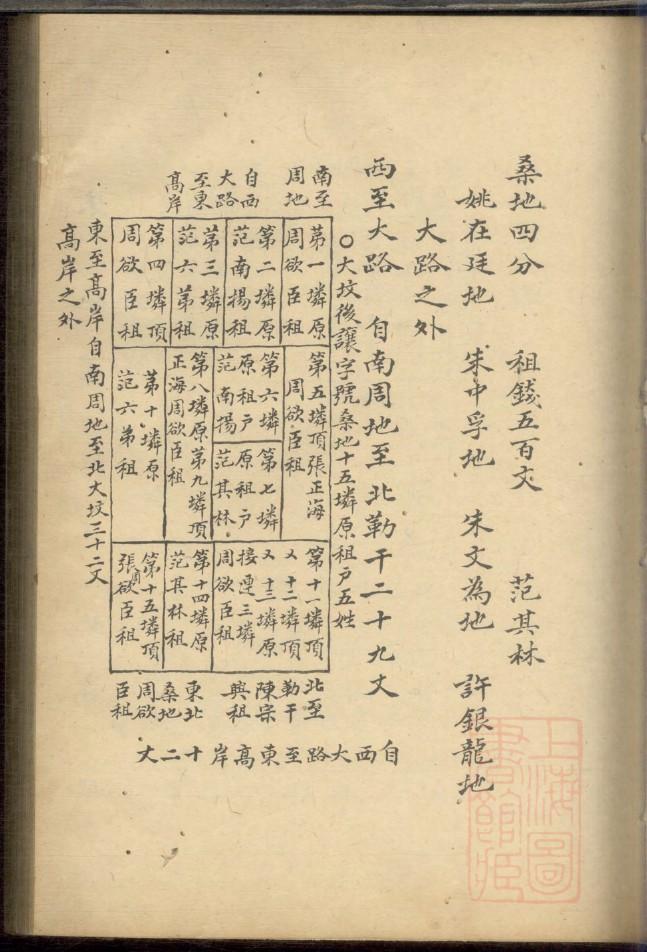 桑地四分　祖錢五百文　范其林
姚在廷地　朱中孚地　朱文為地　許銀龍地
大路之外
西至大路　自南周地至北勒干二十九丈
○大坟後讓字號桑地十五璘原祖戶五姓
南至
周地
自西
大路
至東
高岸
第一璘原
周欲臣祖
第二璘原
范南揚祖
第三璘原
范六苐祖
第四璘頂
周欲臣祖
第五璘頂張正海
周欲臣祖
第六璘
原祖戶
范南揚
第七璘
原祖戶
范其林
第八璘原第九璘頂
正海周欲臣祖
第十璘原
范六苐祖
第十一璘頂
又十二璘頂
又十三璘原
接連三璘
周欲臣祖
第十四璘原
范其林祖
第十五璘頂
張欲臣祖
周
北至
勒干
陳宗
興祖
東北
桑地
周欲
臣祖
自西大路至東高岸十二丈
東至高岸自南周地至北大坟三十二丈
高岸之外
上海圖
書館藏